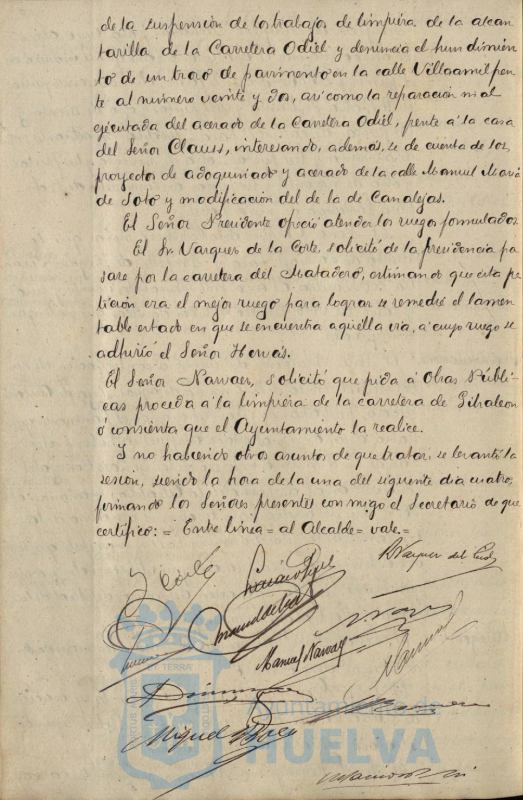 de la suspensión de los trabajos de limpiera de la alcan
tarilla de la Carretera Odiel y denuncia el hundimien
to de un trozo de pavimento en la calle Villaamil fren
te al número veinte y dos, así como la reparación mal
ejecutada del acerado de la Carretera Odiel, frente á la casa
del Señor Clauss, interesando, además, se de cuenta de los
proyectos de adoquinado y acerado de la calle Manuel María
de Soto y modificación del de la de Canalejas.
El Señor Presidente ofreció atender los ruegos formulados.
El Sr. Vazquez de la Corte, solicitó de la presidencia pa
sare por la carretera del Matadero, estimando que esta pe
tición era el mejor ruego para lograr se remedie el lamen
table estado en que se encuentra aquella via, a cuyo ruego se
adhirió el Señor Hervás.
El Señor Narvaez, solicitó que pida á Obras Públi-
cas proceda á la limpiera de la carretera de Gibraleon
ó consienta que el Ayuntamiento la realice.
Y no habiendo otros asuntos de que tratar, se levantó la
sesión, siendo la hora de la una del siguiente dia cuatro,
firmando los Señores presentes con migo el Secretario de que
certifico: = Entre linea = al Alcalde = vale. =
Manuel Narvaez
Miguel
Ayuntamiento de
HUELVA